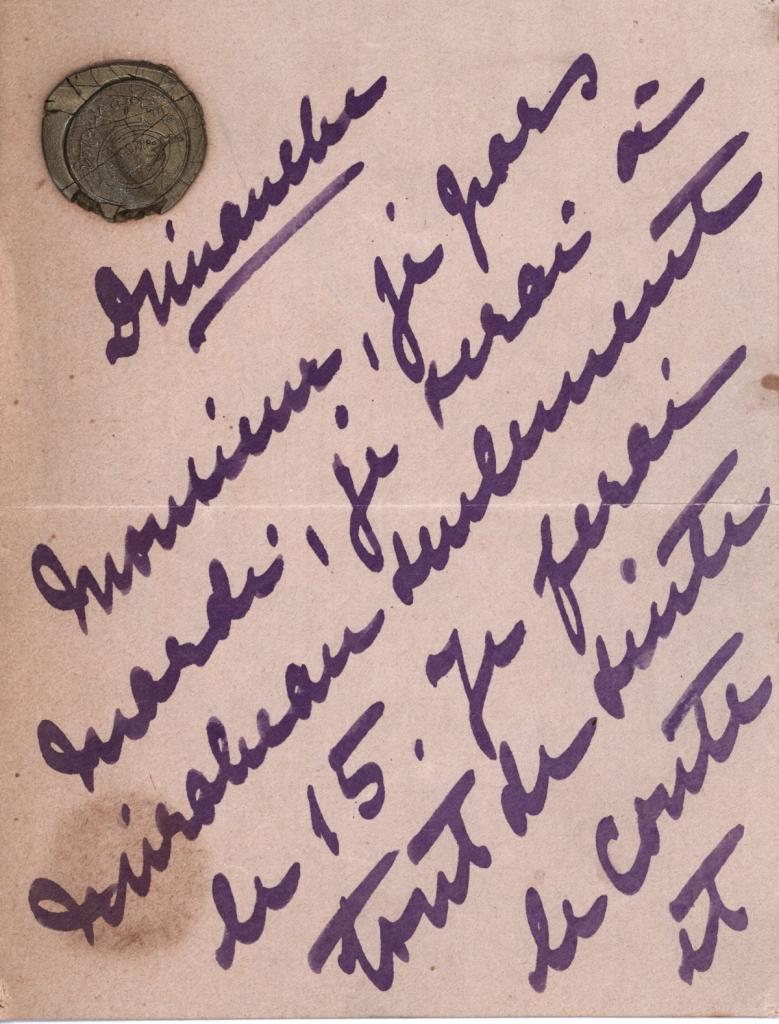 Dimanche
Monsieur, je pars
mardi, je serai à
Mirabeau seulement
le 15. Je ferai
tout de suite
le conte
et